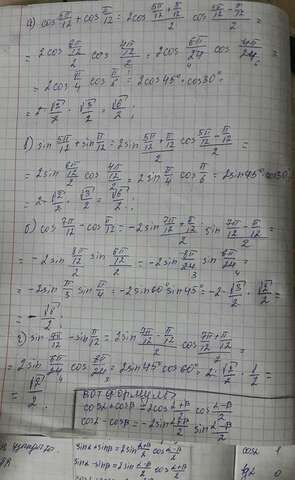 а) cos 5π/12 + cos π/12 = 2cos (5π/12 + π/12)/2 cos (5π/12 − π/12)/2 =
= 2cos (6π/12)/2 cos (4π/12)/2 = 2cos 6π/24 cos 4π/24 =
= 2cos π/4 cos π/6 = 2cos45° · cos30° =
= 2 · √2/2 · √3/2 = √6/2;
в) sin 5π/12 + sin π/12 = 2sin (5π/12 + π/12)/2 cos (5π/12 − π/12)/2 =
= 2sin (6π/12)/2 cos (4π/12)/2 = 2sin π/4 cos π/6 = 2sin45° cos30°
= 2 · √2/2 · √3/2 = √6/2;
б) cos 7π/12 − cos π/12 = −2sin (7π/12 + π/12)/2 sin (7π/12 − π/12)/2 =
= −2sin (8π/12)/2 sin (6π/12)/2 = −2sin 8π/24 sin 6π/24 =
= −2sin π/3 sin π/4 = −2sin60° sin45° = −2 · √3/2 · √2/2 =
= −√6/2;
г) sin 7π/12 − sin π/12 = 2sin (7π/12 − π/12)/2 cos (7π/12 + π/12)/2 =
= 2sin 6π/24 cos 8π/24 = 2sin45° cos60° = 2 · √2/2 · 1/2 =
= √2/2.
вот формулы
cosα + cosβ = 2cos (α+β)/2 cos (α−β)/2
cosα − cosβ = −2sin (α+β)/2 sin (α−β)/2
sinα + sinβ = 2sin (α+β)/2 cos (α−β)/2
sinα − sinβ = 2sin (α−β)/2 cos (α+β)/2
cosα 1
tgα 0